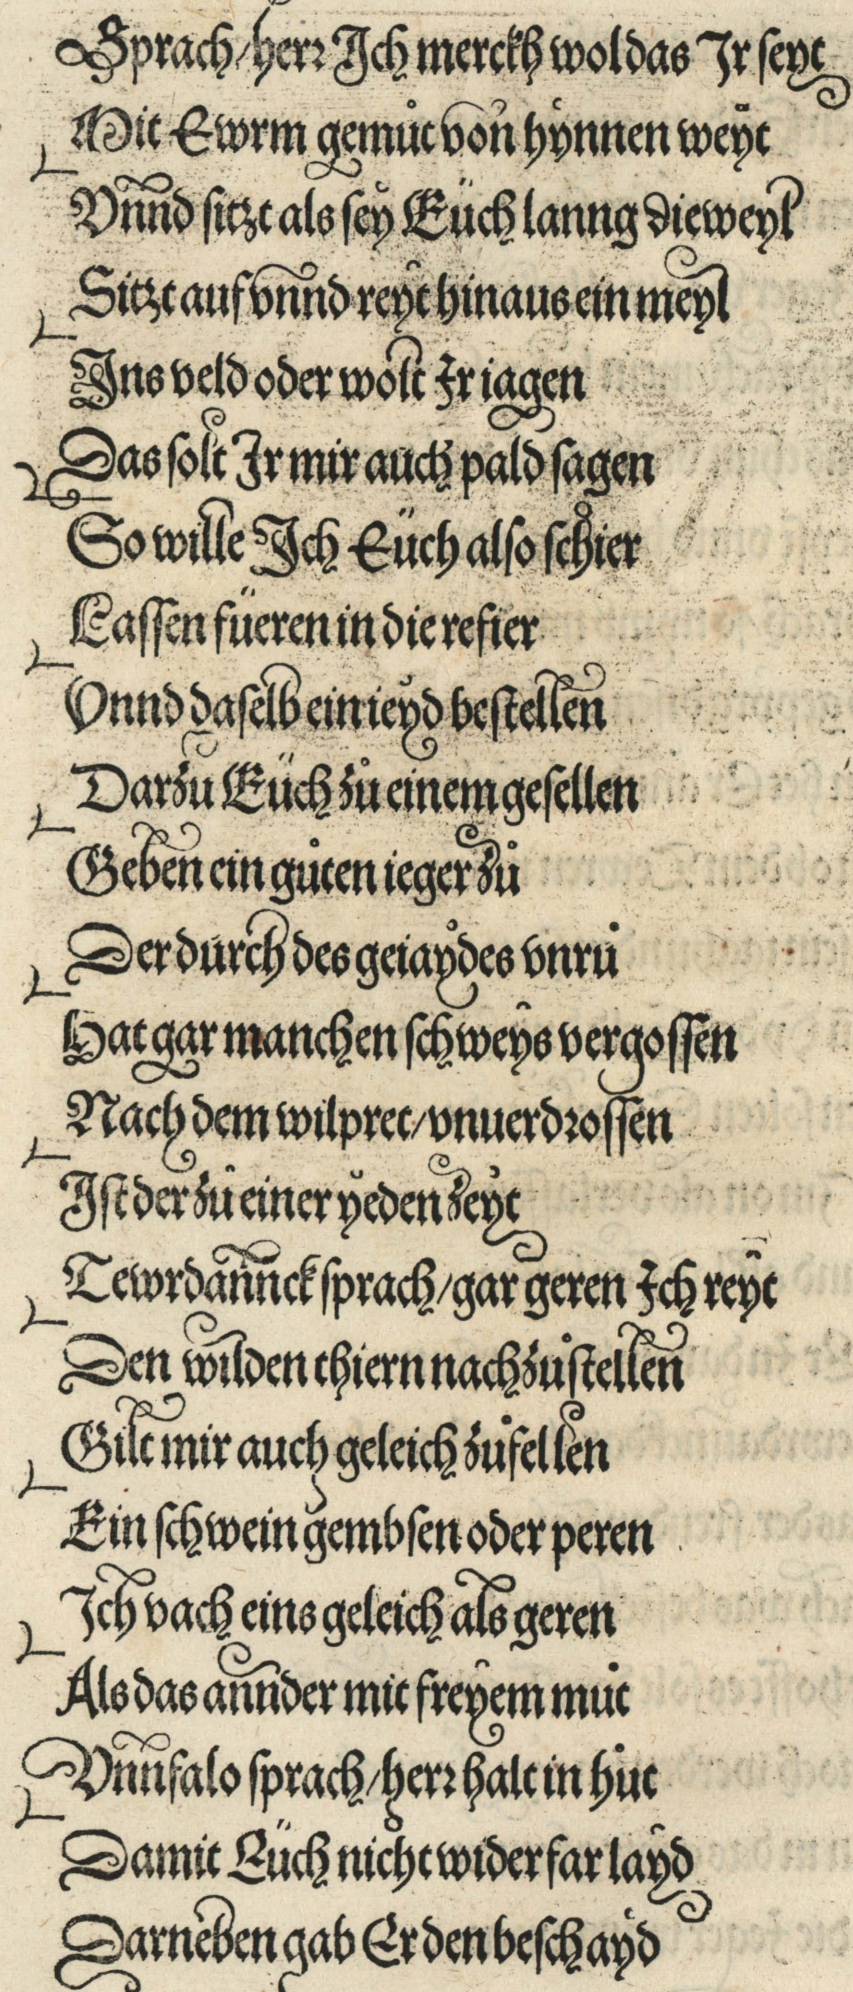 Sprach/herꝛ Ich merckh wol das Ir seyt
Mit Ewrm gemuͤt von hynnen weyt
Vnnd sitzt als sey Euͤch lanng die weyl
Sitzt auf vnnd reyt hinaus ein meyl
Ins veld oder wolt Ir iagen
Das solt Ir mir auch pald sagen
So wille Ich Eüch also schier
Lassen füeren in die refier
Vnnd daselb ein ieyd bestellen
Darzu Eüch zů einem gesellen
Geben ein gůten ieger zů
Der durch des geiaydes vnrů
Hat gar manchen schweys vergossen
Nach dem wilpret/vnuerdꝛossen
Ist der zů einer yeden zeyt
Tewrdannck sprach/gar geren Ich reyt
Den wilden thiern nachzůstellen
Gilt mir auch geleich zůfellen
Ein schwein gembsen oder peren
Ich vach eins geleich als geren
Als das annder mit freyem můt
Vnnfalo sprach/herꝛ halt in hůt
Damit Eüch nicht widerfar layd
Darneben gab Er den beschayd